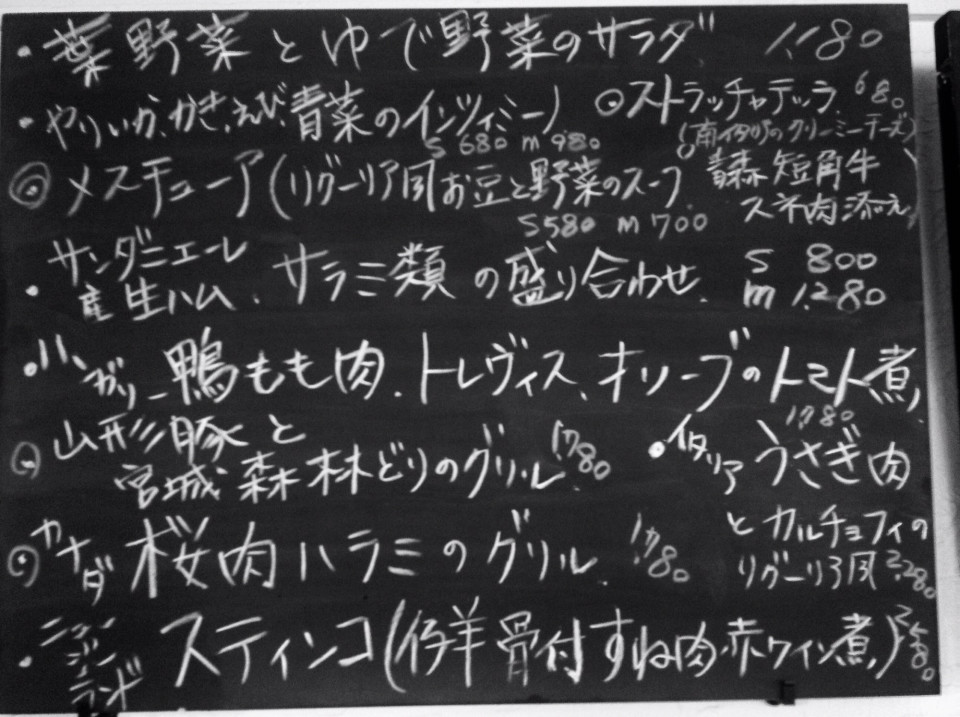 ・葉野菜とゆで野菜のサラダ 1,180
・やりいか、かき、えび、青菜のインツィミーノ
S 680 m 980
◎ストラッチャテッラ 680
(南イタリアのクリーミーチーズ)
◎メスチューア(リグーリア風お豆と野菜のスープ
S 580 m 700
青森短角牛
スネ肉添え)
・サンダニエーレ
産生ハム、サラミ類の盛り合わせ
S 800
m 1,280
・ハンガリー鴨もも肉、トレヴィス、オリーブのトマト煮
1,780
◎山形豚と
宮城森林どりのグリル 1,780
・イタリアうさぎ肉
とカルチョフィの
リグーリア風 2,280
◎カナダ桜肉ハラミのグリル 1,780
・ニュージーランド スティンコ(仔羊骨付すね肉赤ワイン煮)